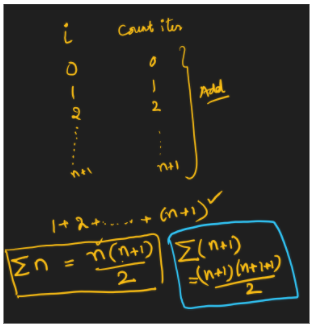 i Count ites
0 0
1 1
2 2
Add
n+1 n+1
1 + 2 + ...... + (n+1) ✓
∑n = n(n+1)/2
∑(n+1)
= (n+1)(n+1+1)/2